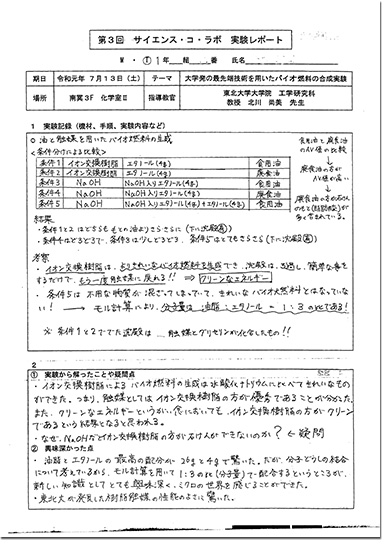 第3回 サイエンス・コ・ラボ 実験レポート
M ・ ① 1年 組 番 氏名
期日 令和元年 7月13日(土) テーマ 大学発の最先端技術を用いたバイオ燃料の合成実験
場所 南冥3F 化学室Ⅱ 指導教官 東北大学大学院 工学研究科
教授 北川 尚美 先生
1 実験記録(機材、手順、実験内容など)
○油と触媒を用いたバイオ燃料の生成
<条件分けによる比較>
条件1 イオン交換樹脂 エタノール(4g) 食用油
条件2 イオン交換樹脂 エタノール(4g) 廃食油
条件3 NaOH NaOH入りエタノール(4g) 食用油
条件4 NaOH NaOH入りエタノール(4g) 廃食油
条件5 NaOH NaOH入りエタノール(4g)+エタノール(4g) 食用油
食用油と廃食油
のAV値の比較
↓
廃食油の方が
AV値が高い
↓
廃食油の方が
多く含まれている。
結果
・条件1と2はどちらももとの油よりさらさら(下に沈殿有)
・条件4はどろどろで、条件3は少しどろどろ、条件5はとてもさらさら(下に沈殿有)
考察
・イオン交換樹脂は、よりきれいなバイオ燃料を生成でき、沈殿は、
するだけで、もう一度触媒に戻れる!! ⇒ クリーンなエネルギー
・条件5は不用な物質が混ざってしまっていて、きれいなバイオ燃料とはなっていない!
→ モル計算により、分子量は 油脂:エタノール = 1:3のRCである!
※ 条件1と2ででた沈殿は … 触媒とグリセリンが化合したもの!!
2
① 実験から解ったことや疑問点
・イオン交換樹脂によるバイオ燃料の生成は水酸化ナトリウムに比べてきれいなもの
ができた。つまり、触媒としてはイオン交換樹脂の方が優秀であることが分かった。
また、クリーンなエネルギーという面においても、イオン交換樹脂の方がクリーン
であるという結果となると思われる。
・なぜ、NaOHなどイオン交換樹脂の方が石けんができないのか? ← 疑問
② 興味深かった点
・油脂とエタノールの最高の配分が 26gと4gで驚いた。だが、分子どうしの結合
について考えているから、モル計算を用いて1:3のRC(分子量)で配合するというところが、
新しい知識としてとても興味深く、ミクロの世界を感じることができた。
・東北大が発見した樹脂触媒の性能のよさに驚いた。